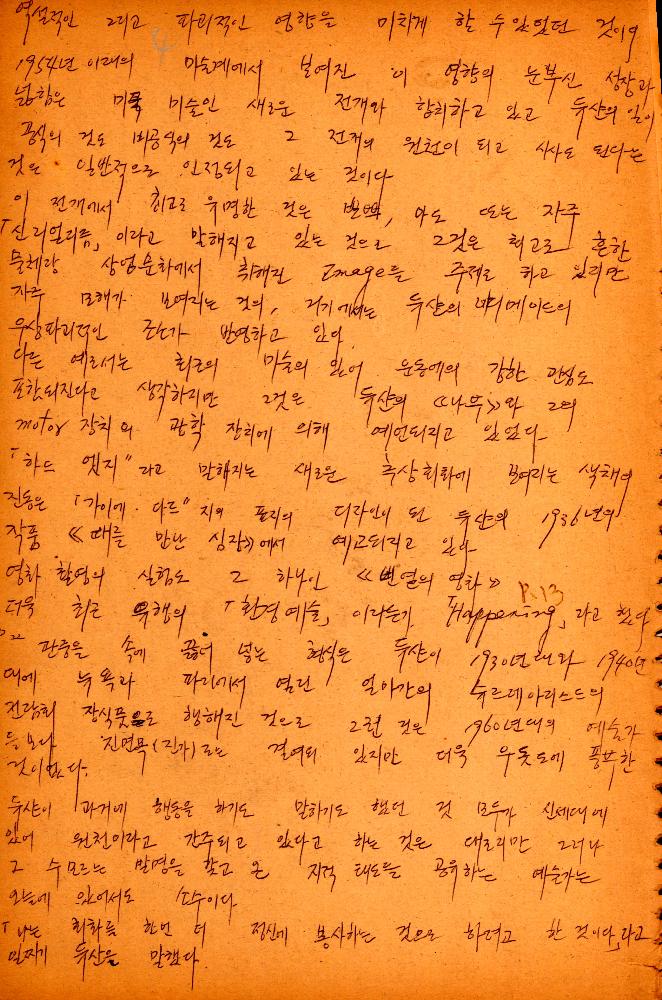 역설적인 그리고 파괴적인 영향을 미치게 할 수 있었던 것이며
1954년 이래의 미술계에서 보여진 이 영향의 눈부신 성장과
넓힘은 미국 미술인 새로운 전개와 합치하고 있고 듀샹의 일이
공식의 것도 비공식의 것도 그 전개의 원천이 되고 사사도 된다는
것은 일반적으로 인정되고 있는 것이다
이 전개에서 최고로 유명한 것은 반박, 아도 또는 자주
「신리얼리즘」이라고 말해지고 있는 것으로 그것은 최고로 흔한
물체랑 상업문화에서 취해진 Image를 주제로 하고 있지만
자주 오해가 보여지는 것의, 거기에서는 듀샹의 레디메이드의
우상파괴적인 조소가 반영하고 있다
다른 예로서는 최근의 미술의 있어 운동에의 강한 관심도
포함되진다고 생각하지만 그것은 듀샹의 《나무》와 그의
motor 장치의 광학 장치에 의해 예언되지고 있었다
「하드 엣지"라고 말해지는 새로운 추상회화에 보여지는 색채의
진동은 「가이에·다드"지의 표지의 디자인이 된 듀샹의 1936년의
작품 《때를 만난 심장》에서 예고되지고 있다
영화 촬영의 실험도 그 하나인 《빈혈의 영화》 P.13
더욱 최근 유행의 「환경예술」이라든가 「Happening」라고 했다
관중을 속에 끌어 넣는 형식은 듀샹이 1930년대와 1940년
대에 뉴욕과 파리에서 열린 얼마간의 슈르레아리스트의
전람회 장식풍으로 행해진 것으로 그런 것은 1960년대의 예술가
들보다 진면목(진가)로는 결여되 있지만 더욱 우돗도에 풍부한
것이었다.
듀샹이 과거에 행동을 하기도 말하기도 했던 것 모두가 신세대에
있어 원천이라고 간주되고 있다고 하는 것은 대로리만 그러나
그 수모르는 발명을 할고 온 지적 태도를 공유하는 예술가는
오늘에 있어서도 소수이다
「나는 회화를 한번 더 정신에 봉사하는 것으로 하려고 한 것이다」라고
일찌기 듀샹은 말했다